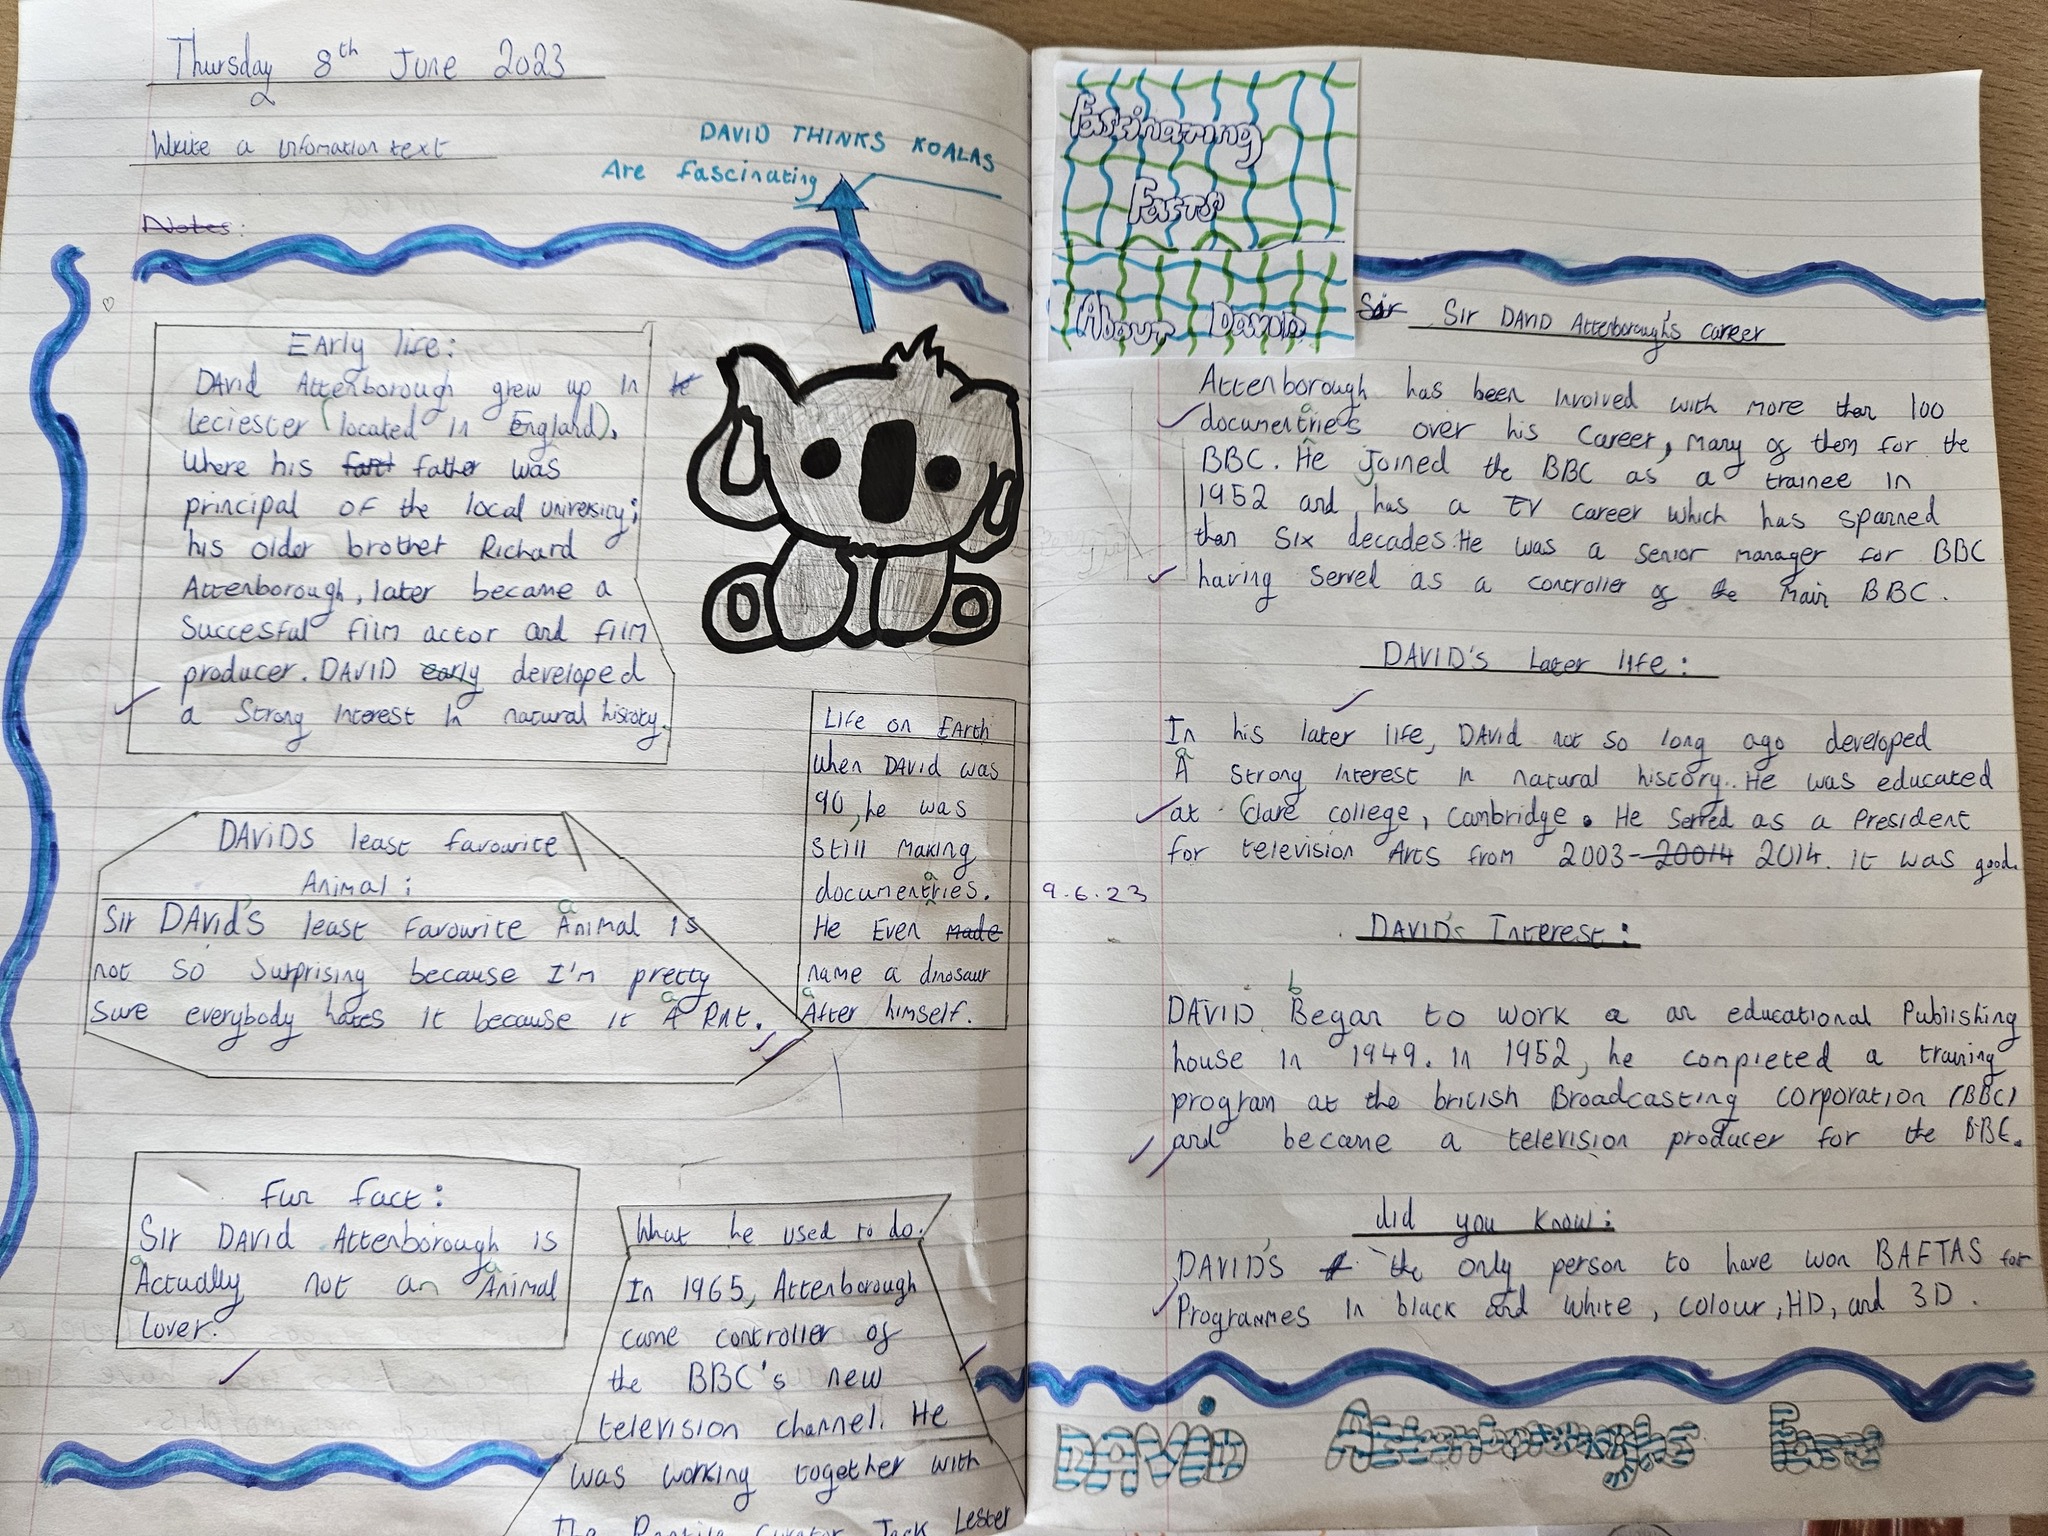 Thursday 8th June 2023
Write a infomation text
Notes:
DAVID THINKS KOALAS
Are fascinating
Early life:
DAVID Attenborough grew up in le
leciester (located in England).
Where his fart father was
principal of the local university;
his older brother Richard
Attenborough, later became a
succesful film actor and film
producer. DAVID early developed
a strong interest in natural history.
Life on Earth
When DAVID was
90, he was
still making
documentries.
a
He Even made
name a dinosaur
After himself.
a
DAViDS least favourite
Animal:
Sir DAViD's least favourite Animal is
a
not so surprising because I'm pretty
sure everybody hates it because it A Rat.
a
Fun fact:
Sir DAVID Attenborough is
Actually not an Animal
a a
lover.
What he used to do:
In 1965, Attenborough
came controller of
the BBC's new
television channel. He
was working together with
The Curator Jack Lester
Fascinating
Facts
About David
Sir Sir DAVID Attenborough's career
Attenborough has been involved with more than 100
documentries over his career, many of them for the
a
BBC. He joined the BBC as a trainee in
1952 and has a TV career which has spanned
than six decades. He was a senior manager for BBC
having served as a controller of the main BBC.
DAVID's later life:
In his later life, DAVID not so long ago developed
A strong interest in natural history. He was educated
a
at Clare college, Cambridge. He served as a President
for television Arts from 2003-20014 2014. it was good.
9.6.23
DAVID's Interest:
DAVID Began to work a an educational Publishing
b
house in 1949. In 1952, he completed a training
program at the british Broadcasting corporation (BBC)
and became a television producer for the BBC.
did you know:
DAVID'S the only person to have won BAFTAS for
Programmes in black and white, colour, HD, and 3D.
DAViD Attenboroughs Facts